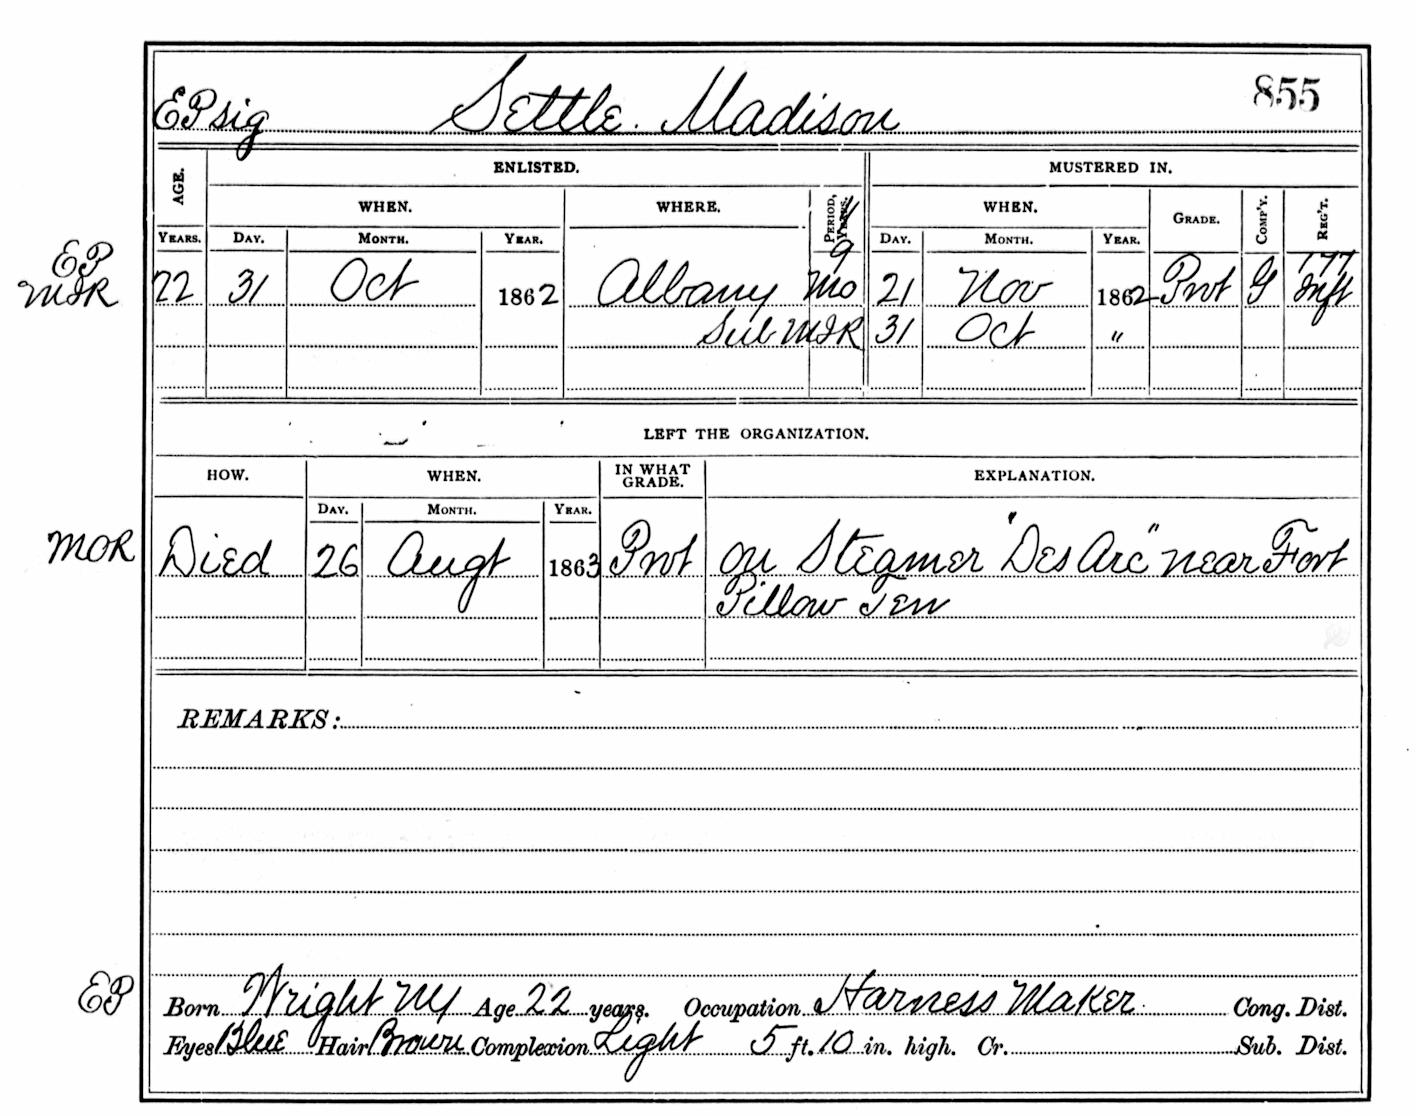 EP sig Settle. Madison 855
AGE. ENLISTED. MUSTERED IN.
WHEN. WHERE. PERIOD, YEARS. WHEN. GRADE. COMP'Y. REG'T.
YEARS. DAY. MONTH. YEAR. DAY. MONTH. YEAR.
EP 9 177
MIR 22 31 Oct 1862 Albany Mo 21 Nov 1862 Pvt G Inft
Sub MIR 31 Oct "
LEFT THE ORGANIZATION.
HOW. WHEN. IN WHAT GRADE. EXPLANATION.
DAY. MONTH. YEAR.
MOR Died 26 Augt 1863 Pvt on Steamer "Des Arc" near Fort
Pillow Ten
REMARKS:
EP Born Wright NY Age 22 years. Occupation Harness Maker Cong. Dist.
Eyes Blue Hair Brown Complexion Light 5 ft. 10 in. high. Cr. Sub. Dist.